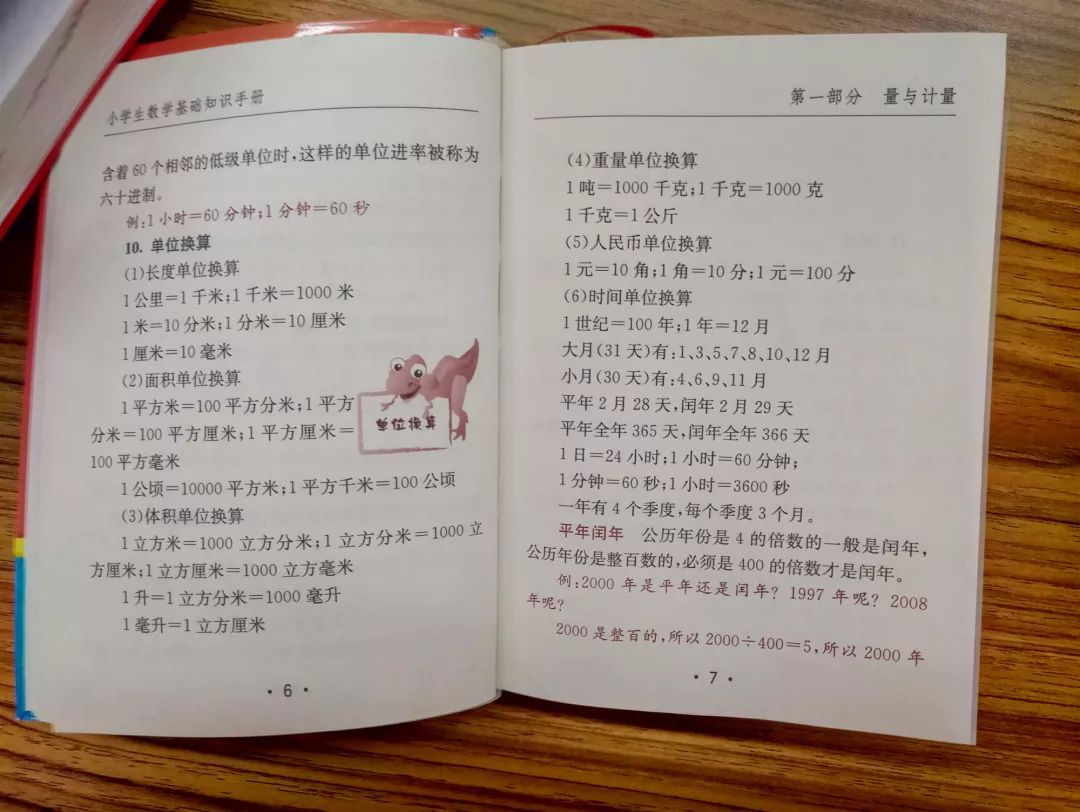 小学生数学基础知识手册
含着60个相邻的低级单位时,这样的单位进率被称为
六十进制。
例:1小时=60分钟;1分钟=60秒
10. 单位换算
(1)长度单位换算
1公里=1千米;1千米=1000米
1米=10分米;1分米=10厘米
1厘米=10毫米
(2)面积单位换算
1平方米=100平方分米;1平方
分米=100平方厘米;1平方厘米=
100平方毫米
单位换算
1公顷=10000平方米;1平方千米=100公顷
(3)体积单位换算
1立方米=1000立方分米;1立方分米=1000立
方厘米;1立方厘米=1000立方毫米
1升=1立方分米=1000毫升
1毫升=1立方厘米
·6·
第一部分 量与计量
(4)重量单位换算
1吨=1000千克;1千克=1000克
1千克=1公斤
(5)人民币单位换算
1元=10角;1角=10分;1元=100分
(6)时间单位换算
1世纪=100年;1年=12月
大月(31天)有:1、3、5、7、8、10、12月
小月(30天)有:4、6、9、11月
平年2月28天,闰年2月29天
平年全年365天,闰年全年366天
1日=24小时;1小时=60分钟;
1分钟=60秒;1小时=3600秒
一年有4个季度,每个季度3个月。
平年闰年 公历年份是4的倍数的一般是闰年,
公历年份是整百数的,必须是400的倍数才是闰年。
例:2000年是平年还是闰年?1997年呢?2008
年呢?
2000是整百的,所以2000÷400=5,所以2000年
·7·